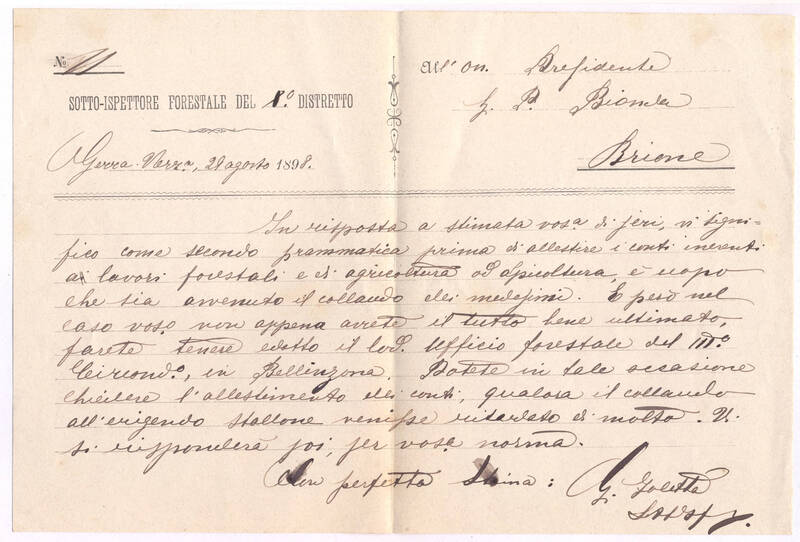 No. 11
SOTTO-ISPETTORE FORESTALE DEL 8.o DISTRETTO
Gerra-Verz.a, 29 agosto 1898.
All'on. Presidente
P. Bionda
Brione
In risposta a stimata vos.a di jeri, vi signi-
fico come secondo prammatica prima di allestire i conti inerenti
ai lavori forestali e di agricoltura od apicoltura, è uopo
che sia avvenuto il collaudo dei medesimi. E però nel
caso vos.o non appena avrete il tutto bene ultimato,
farete tenere edotto il lod. Ufficio forestale del III.o
Circond.o, in Bellinzona. Potete in tale occasione
chiedere l'allestimento dei conti, qualora il collaudo
all'erigendo stallone venisse ritardato di molto. Vi
si risponderà poi, per vos.a norma.
Con perfetta Stima:
G.